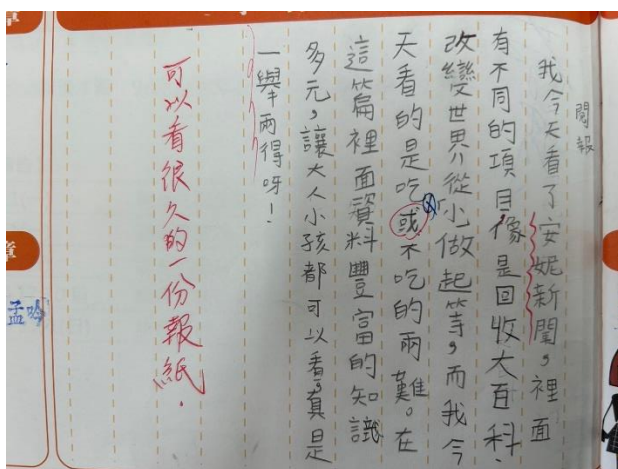 閱報
我今天看了安妮新聞，裡面
有不同的項目像是回收大百科、
改變世界從小做起等，而我今
天看的是吃或不吃的兩難。在
這篇裡面資料豐富的知識
多元，讓大人小孩都可以看，真是
一舉兩得呀！
可以看很久的一份報紙.
孟吟